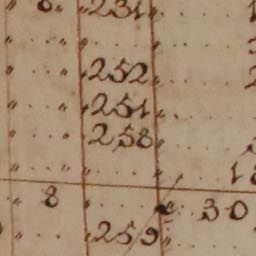 8 . . 231
252
251
258
18
8 . . . . 30
259